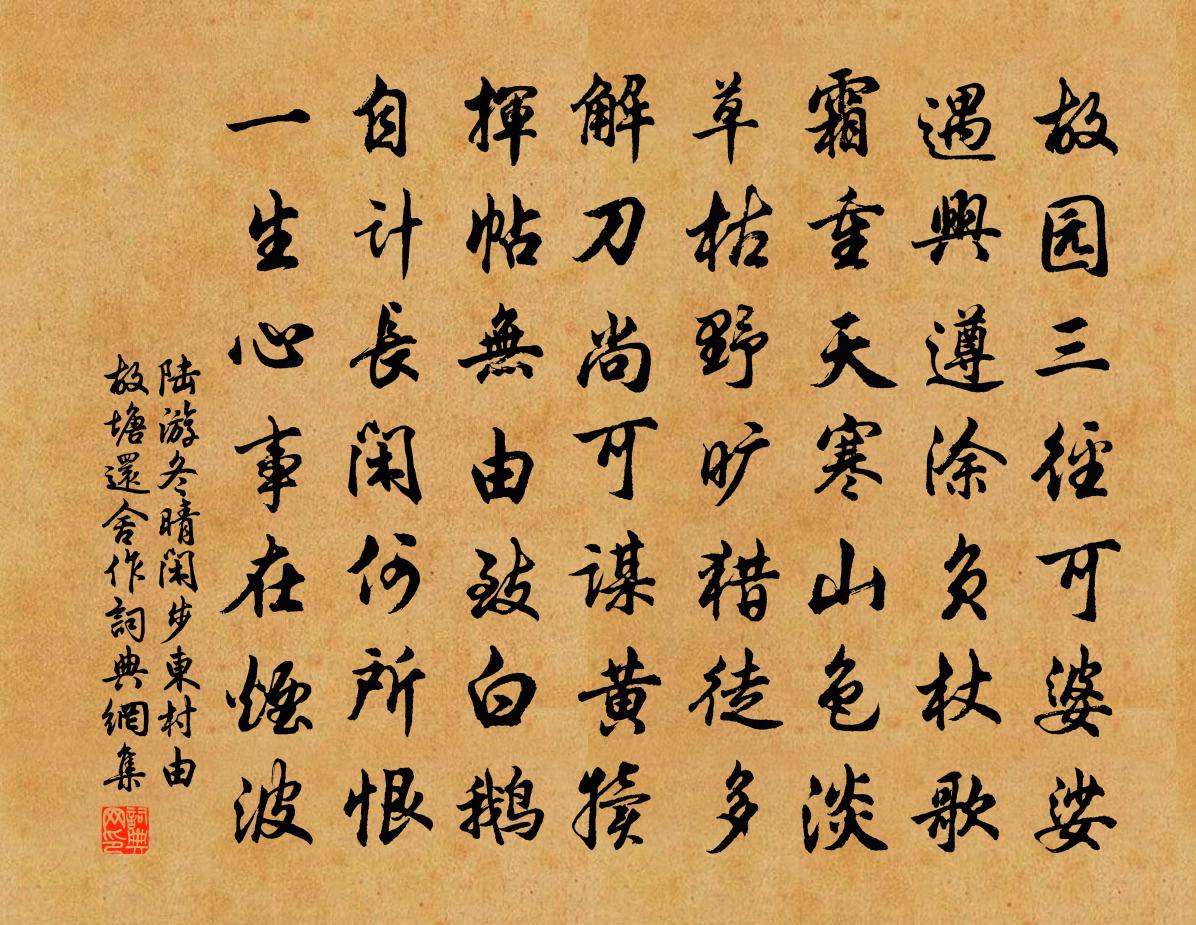 故园三徑可婆娑
遇興遵涂负杖歌
霜重天寒山色淡
草枯野旷猎徒多
解刀尚可謀黄犢
揮帖無由致白鵝
自计長閑何所恨
一生心事在煙波
陆游冬晴閑步東村由
故塘還舍作詞典網集
詞典网印